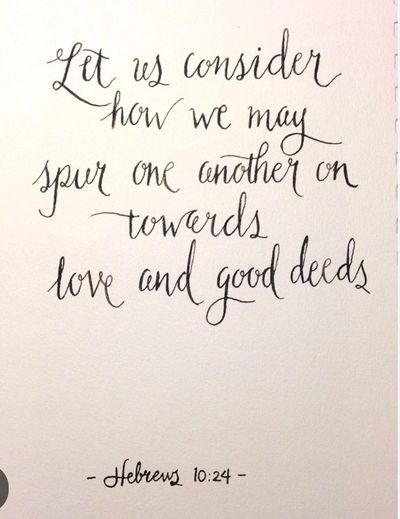 Let us consider
how we may
spur one another on
towards
love and good deeds
- Hebrews 10:24 -